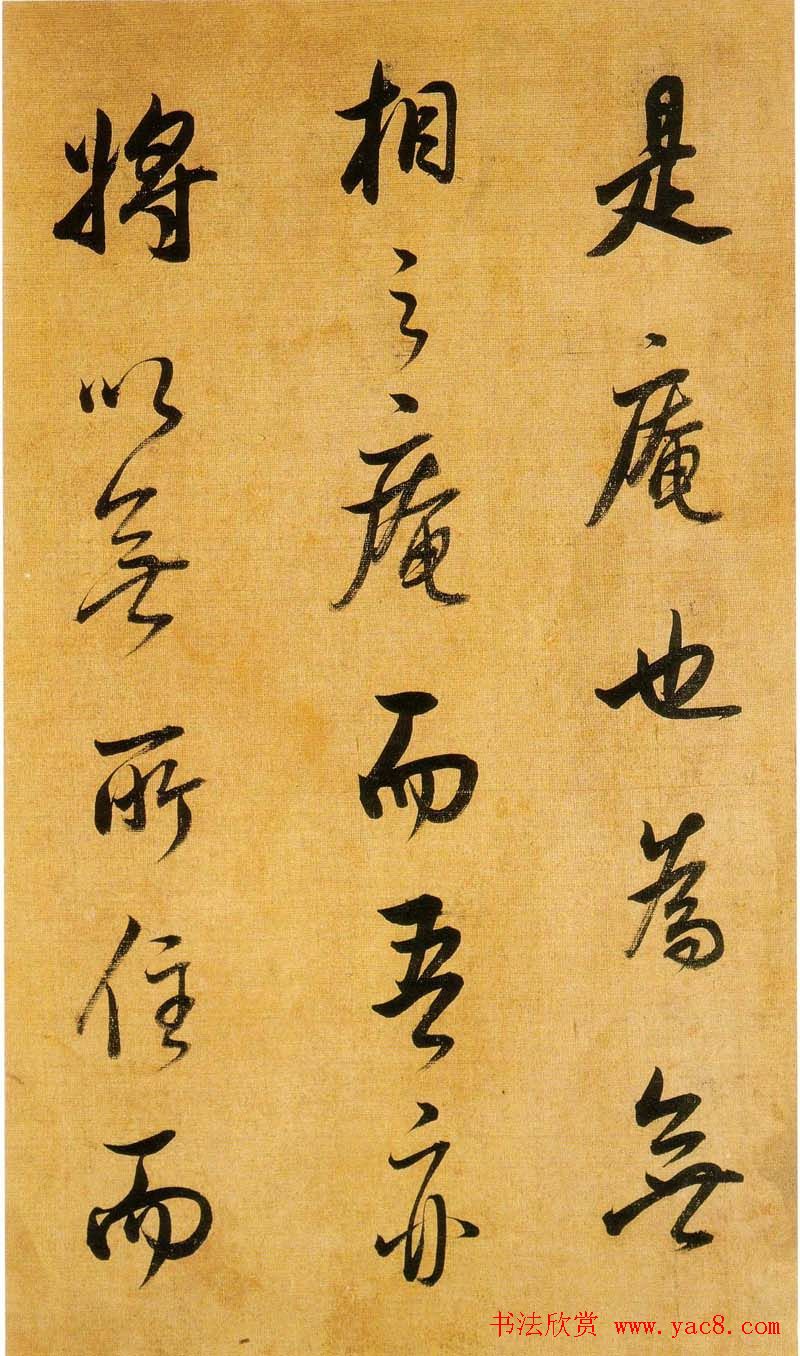 是庵也為無
相之庵而吾亦
將以無所住而
书法欣赏 www.yac8.com